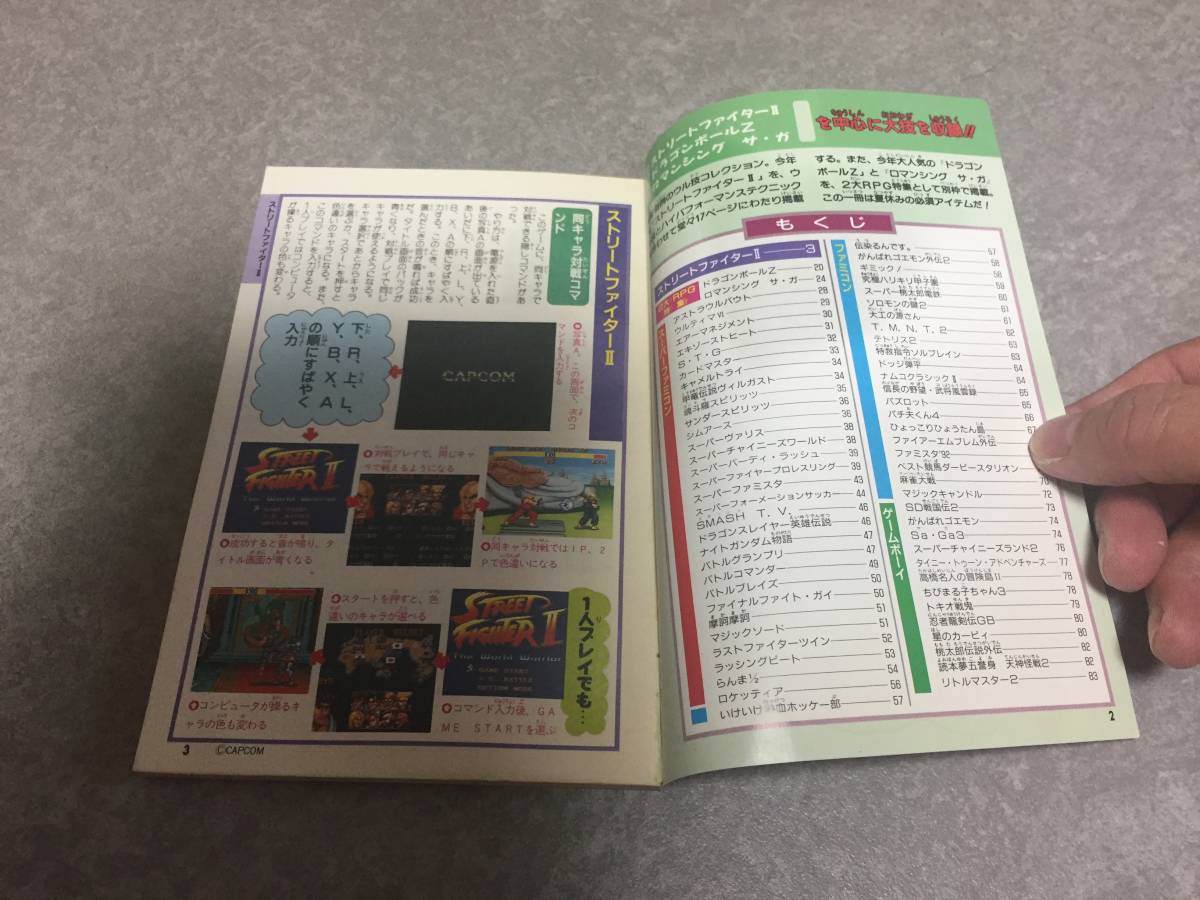 ストリートファイターⅡ
ドラゴンボールZ
ロマンシング サ・ガ
を中心に大技を収録!!
のウル技コレクション。今年
ストリートファイターⅡ』を、ウ
ハイパフォーマンステクニック
わせて堂々17ページにわたり掲載
する。また、今年大人気の『ドラゴン
ボールZ』と『ロマンシング サ・ガ』
を、2大RPG特集として別枠で掲載。
この一冊は夏休みの必須アイテムだ!
もくじ
ストリートファイターⅡ 3
2大RPG特集!
ドラゴンボールZ 20
ロマンシング サ・ガ 24
スーパーファミコン
アストラウルバウト 28
ウルティマⅥ 29
エアーマネジメント 30
エキゾーストヒート 31
S・T・G 32
カードマスター 33
キャメルトライ 34
甲竜伝説ヴィルガスト 34
魂斗羅スピリッツ 35
サンダースピリッツ 36
シムアース 36
スーパーヴァリス 38
スーパーチャイニーズワールド 38
スーパーバーディ・ラッシュ 39
スーパーファイヤープロレスリング 39
スーパーファミスタ 43
スーパーフォーメーションサッカー 44
SMASH T.V. 46
ドラゴンスレイヤー英雄伝説 46
ナイトガンダム物語 47
バトルグランプリ 49
バトルコマンダー 49
バトルブレイズ 50
ファイナルファイト・ガイ 50
摩訶摩訶 51
マジックソード 51
ラストファイターツイン 52
ラッシングビート 53
らんま½ 54
ロケッティア 56
いけいけ 血ホッケー部 57
ファミコン
伝染るんです。 57
がんばれゴエモン外伝2 58
ギミック! 58
究極ハリキリ甲子園 59
スーパー桃太郎電鉄 60
ソロモンの鍵2 61
大工の源さん 61
T.M.N.T.2 62
テトリス2 63
特救指令ソルブレイン 63
ドッジ弾平 64
ナムコクラシックⅡ 64
信長の野望・武将風雲録 65
パズロット 65
パチ夫くん4 66
ひょっこりひょうたん島 67
ファイアーエムブレム外伝
ファミスタ'92
ベスト競馬ダービースタリオン
麻雀大戦 70
ゲームボーイ
マジックキャンドル 72
SD戦国伝2 73
がんばれゴエモン 74
Sa・Ga3 74
スーパーチャイニーズランド2 76
タイニー・トゥーン・アドベンチャーズ 77
高橋名人の冒険島Ⅱ 78
ちびまる子ちゃん3 78
トキオ戦鬼 79
忍者龍剣伝GB 80
星のカービィ 80
桃太郎伝説外伝 82
読本夢五誉身 天神怪戦2 82
リトルマスター2 83
2
ストリートファイターⅡ
ストリートファイターⅡ
同キャラ対戦コマンド
このゲームに、同キャラで
対戦できる隠しコマンドがあ
った。
やり方は、電源を入れた直
後の写真Aの画面が出ている
あいだに、下、R、上、L、Y、
B、X、Aの順にすばやく入
力する。このとき、キャラを
選んだときの音が鳴れば成功
だ。タイトル画面のバックが
青くなり、対戦プレイで同じ
キャラが使えるようになる。
キャラ選択であとからキャラ
を選ぶか、スタートを押すと
色違いのキャラになる。また、
このコマンドを入力すると、
1人プレイではコンピュータ
が操るキャラの色も変わる。
CAPCOM
写真A。この画面で、次のコ
マンドを入力する
下、R、上、L、
Y、B、X、A
の順にすばやく
入力
STREET FIGHTER Ⅱ
The World Warrior
GAME START
V.S. BATTLE
OPTION MODE
成功すると音が鳴り、タ
イトル画面が青くなる
対戦プレイで、同じキャ
ラで戦えるようになる
同キャラ対戦では1P、2
Pで色違いになる
1人プレイでも…
STREET FIGHTER Ⅱ
The World Warrior
GAME START
V.S. BATTLE
OPTION MODE
コマンド入力後、GA
ME STARTを選ぶ
スタートを押すと、色
違いのキャラが選べる
コンピュータが操るキ
ャラの色も変わる
3
©CAPCOM